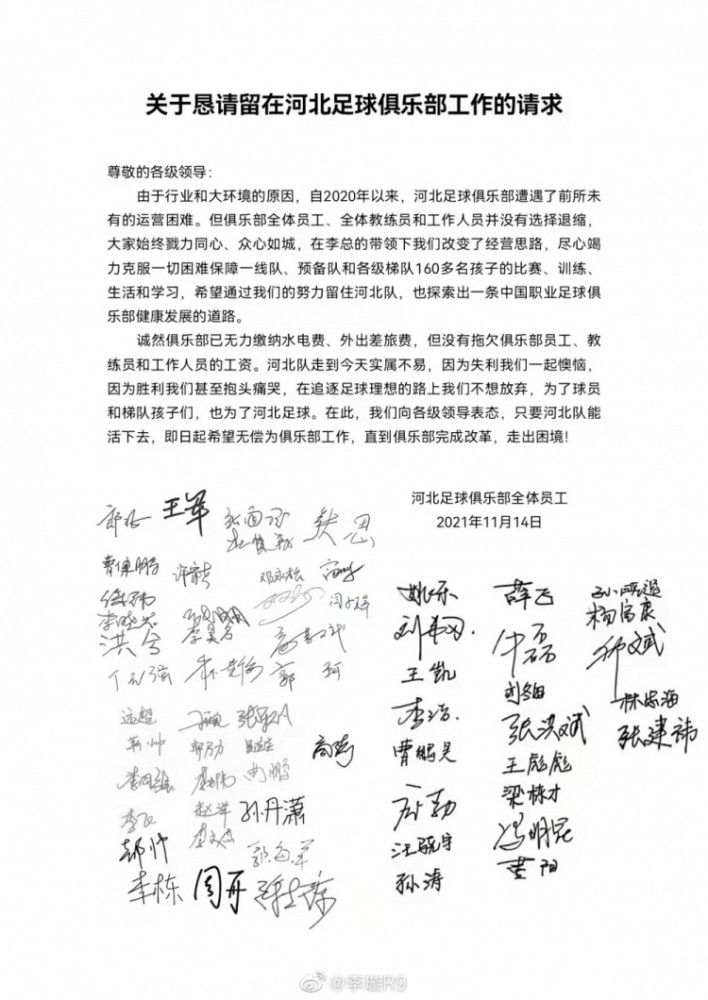 关于恳请留在河北足球俱乐部工作的请求
尊敬的各级领导：
由于行业和大环境的原因，自2020年以来，河北足球俱乐部遭遇了前所未
有的运营困难。但俱乐部全体员工、全体教练员和工作人员并没有选择退缩，
大家始终戮力同心、众心如城，在李总的带领下我们改变了经营思路，尽心竭
力克服一切困难保障一线队、预备队和各级梯队160多名孩子的比赛、训练、
生活和学习，希望通过我们的努力留住河北队，也探索出一条中国职业足球俱
乐部健康发展的道路。
诚然俱乐部已无力缴纳水电费、外出差旅费，但没有拖欠俱乐部员工、教
练员和工作人员的工资。河北队走到今天实属不易，因为失利我们一起懊恼，
因为胜利我们甚至抱头痛哭，在追逐足球理想的路上我们不想放弃，为了球员
和梯队孩子们，也为了河北足球。在此，我们向各级领导表态，只要河北队能
活下去，即日起希望无偿为俱乐部工作，直到俱乐部完成改革，走出困境！
河北足球俱乐部全体员工
2021年11月14日
王军
姚乐 薛飞
杨富康
王凯
刘旭
李浩 张洪斌 林忠海
曹鹏昊 张建祎
王彪彪
梁栋才
汪晓宇 冯明昆
孙涛 黄阳
远超
孙丹潇
郝帅
李栋 周开
@李璇R9